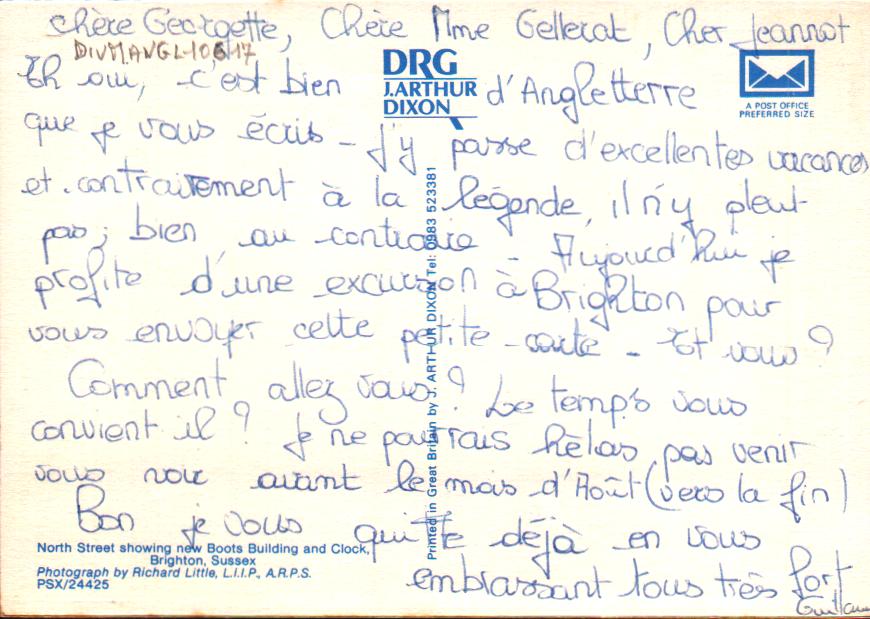 Chère Georgette, Chère Mme Gellerat, Cher Jeannot
DIVMANGL-10617
Eh oui, c'est bien d'Angletterre
DRG
J.ARTHUR
DIXON
A POST OFFICE
PREFERRED SIZE
que je vous écris - J'y passe d'excellentes vacances
et contrairement à la légende, il n'y pleut
pas; bien au contraire - Aujourd'hui je
profite d'une excursion à Brighton pour
vous envoyer cette petite carte - Et vous ?
Comment allez vous ? Le temps vous
convient il ? Je ne pourrais hélas pas venir
vous voir avant le mois d'Août (vers la fin)
Bon je vous quitte déjà en vous
embrassant tous très fort
Printed in Great Britain by J. ARTHUR DIXON Tel: 0983 523381
North Street showing new Boots Building and Clock,
Brighton, Sussex
Photograph by Richard Little, L.I.I.P., A.R.P.S.
PSX/24425